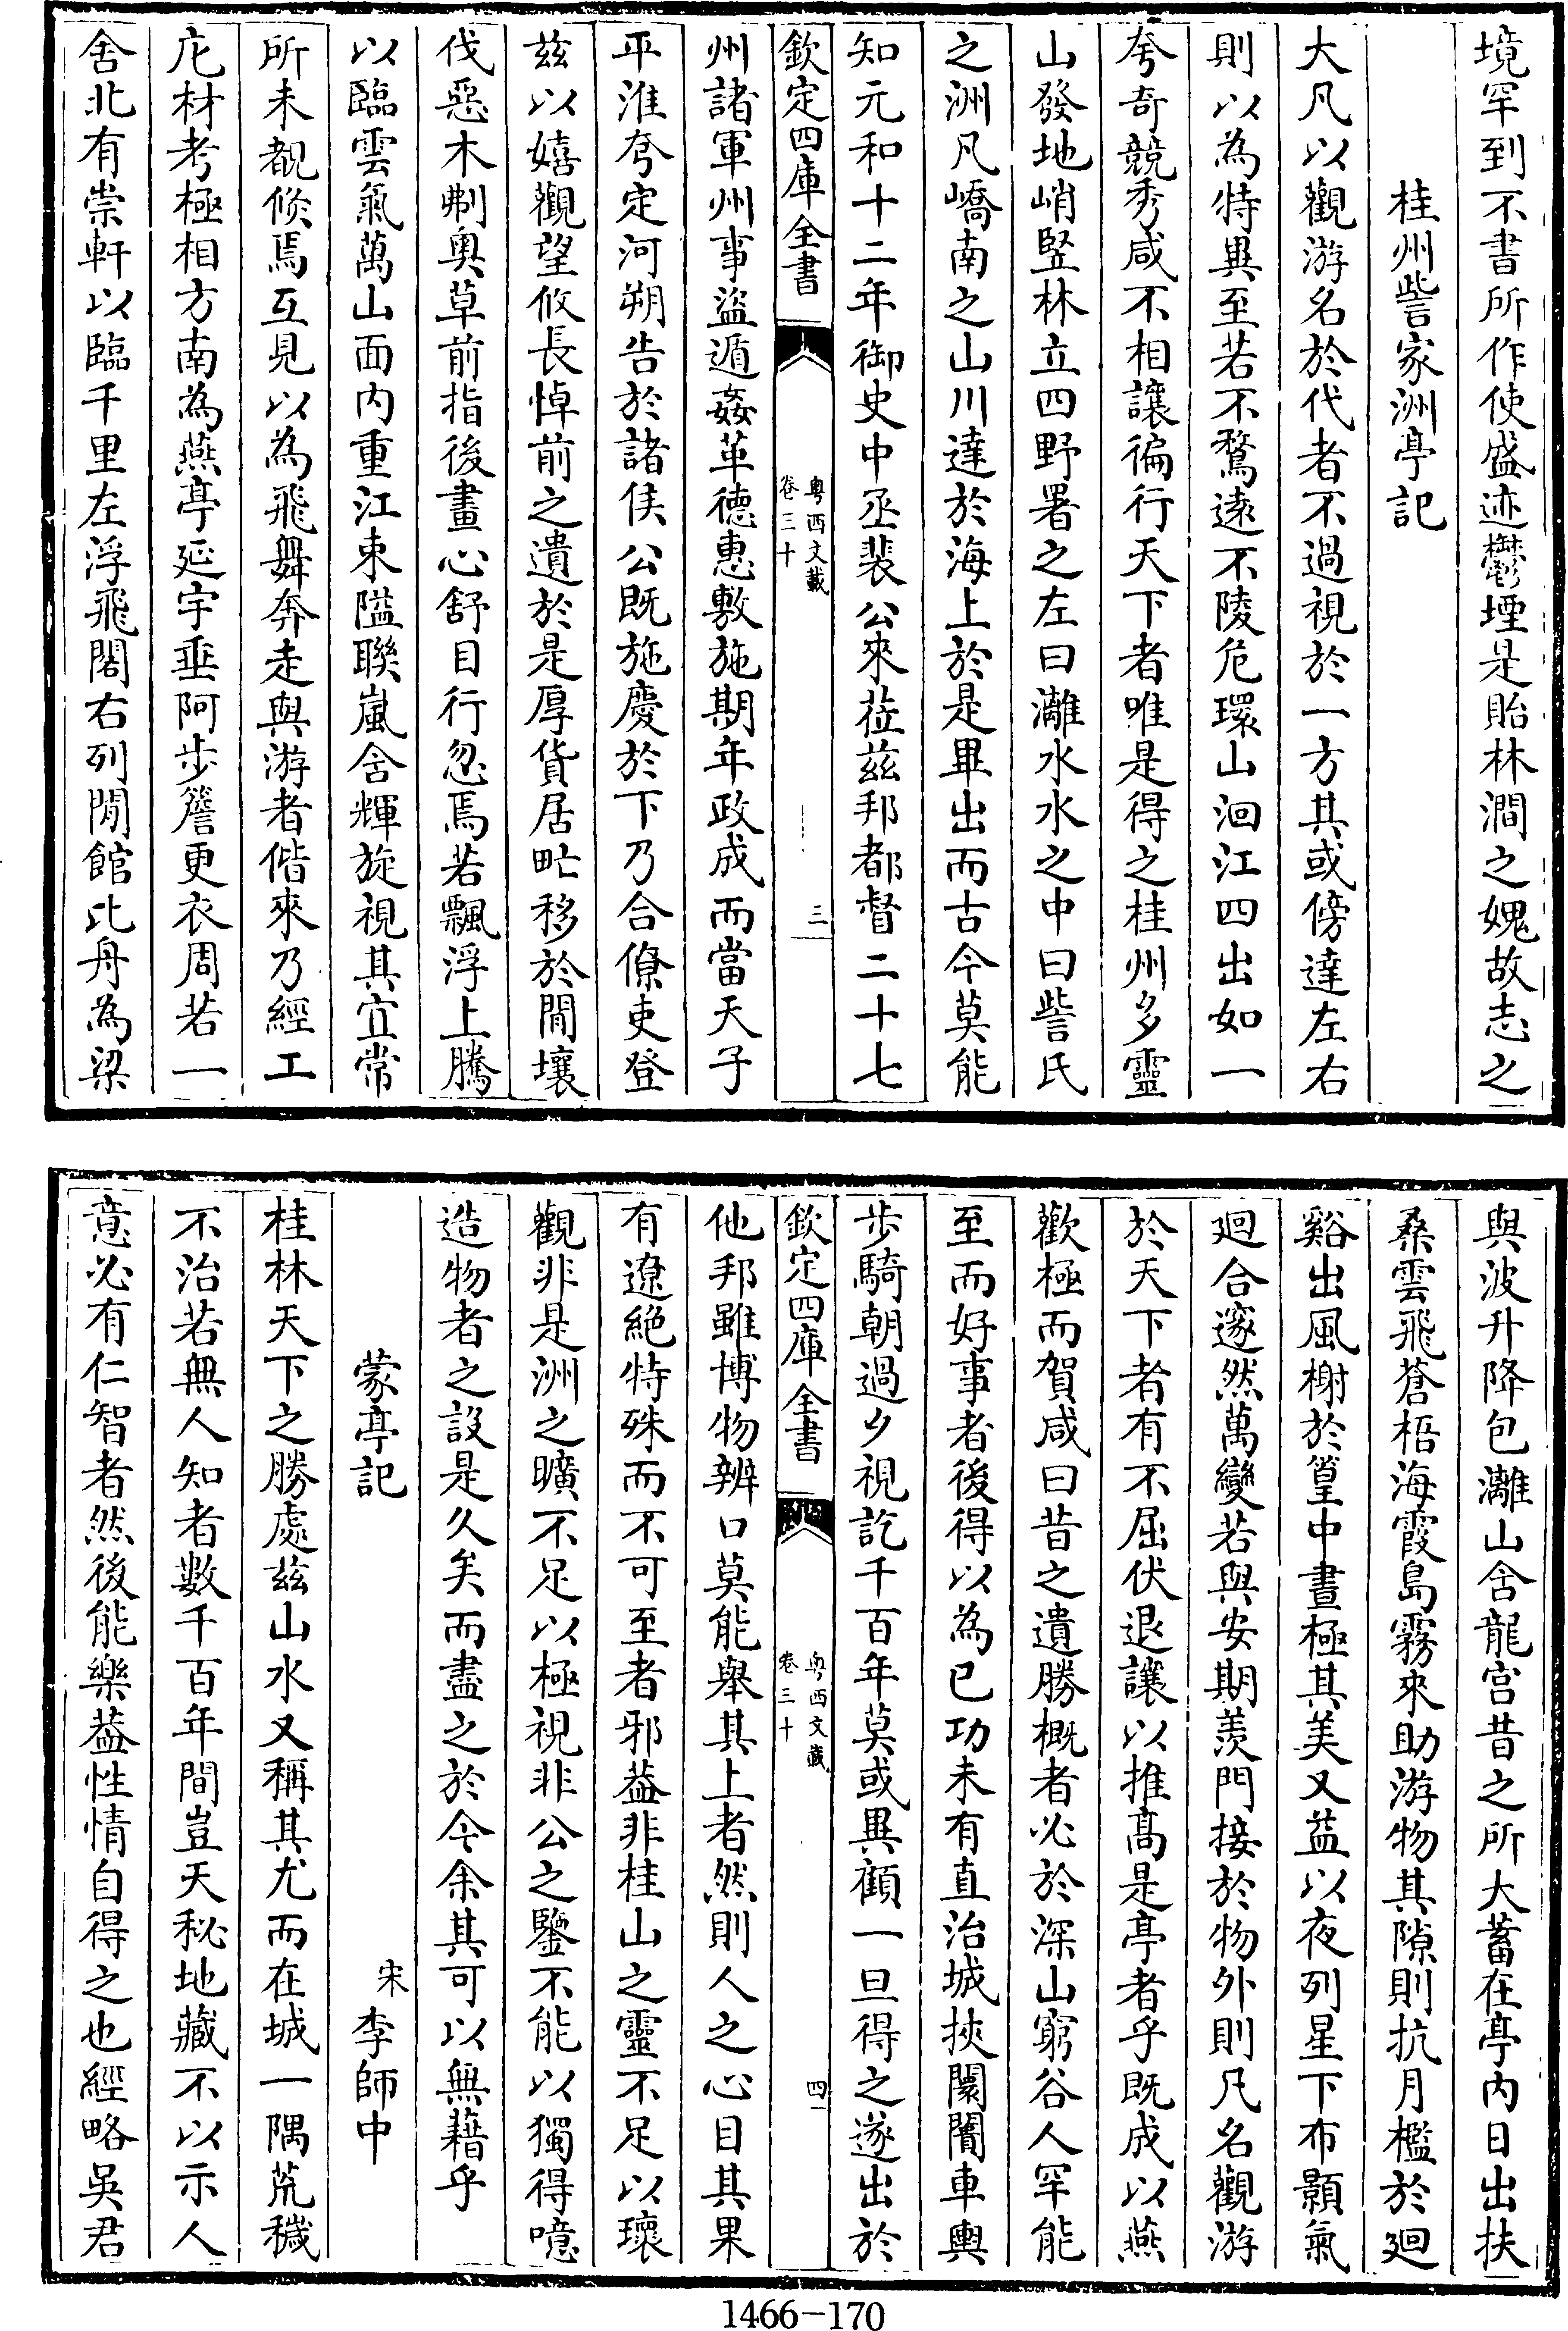 境罕到不書所作使盛迹鬱堙是貽林澗之媿故志之
桂州訾家洲亭記
大凡以觀游名於代者不過視於一方其或傍達左右
則以為特異至若不騖遠不陵危環山洄江四出如一
夸奇競秀咸不相讓徧行天下者唯是得之桂州多靈
山發地峭竪林立四野署之左曰灕水水之中曰訾氏
之洲凡嶠南之山川達於海上於是畢出而古今莫能
知元和十二年御史中丞裴公來莅兹邦都督二十七
欽定四庫全書
粤西文載
卷三十
三
州諸軍州事盜遁姦革德惠敷施期年政成而當天子
平淮夸定河朔告於諸侯公既施慶於下乃合僚吏登
兹以嬉觀望攸長悼前之遺於是厚貨居甿移於閒壤
伐惡木刜奥草前指後畫心舒目行忽焉若飄浮上騰
以臨雲氣萬山面内重江束隘聯嵐含輝旋視其宜常
所未覩倐焉互見以為飛舞奔走與游者偕來乃經工
庀材考極相方南為燕亭延宇垂阿步簷更衣周若一
舍北有崇軒以臨千里左浮飛閣右列閒館比舟為梁
與波升降包灕山含龍宫昔之所大蓄在亭内日出扶
桑雲飛蒼梧海霞島霧來助游物其隙則抗月檻於廻
谿出風榭於篁中晝極其美又益以夜列星下布顥氣
廻合邃然萬變若與安期羨門接於物外則凡名觀游
於天下者有不屈伏退讓以推髙是亭者乎既成以燕
歡極而賀咸曰昔之遺勝概者必於深山窮谷人罕能
至而好事者後得以為已功未有直治城挾闤闠車輿
步騎朝過夕視訖千百年莫或異顧一旦得之遂出於
欽定四庫全書
粤西文載
卷三十
四
他邦雖博物辨口莫能舉其上者然則人之心目其果
有遼絶特殊而不可至者邪葢非桂山之靈不足以瓌
觀非是洲之曠不足以極視非公之鑒不能以獨得噫
造物者之設是久矣而盡之於今余其可以無藉乎
蒙亭記
宋 李師中
桂林天下之勝處兹山水又稱其尤而在城一隅荒穢
不治若無人知者數千百年間豈天秘地藏不以示人
意必有仁智者然後能樂葢性情自得之也經略吳君
1466-170